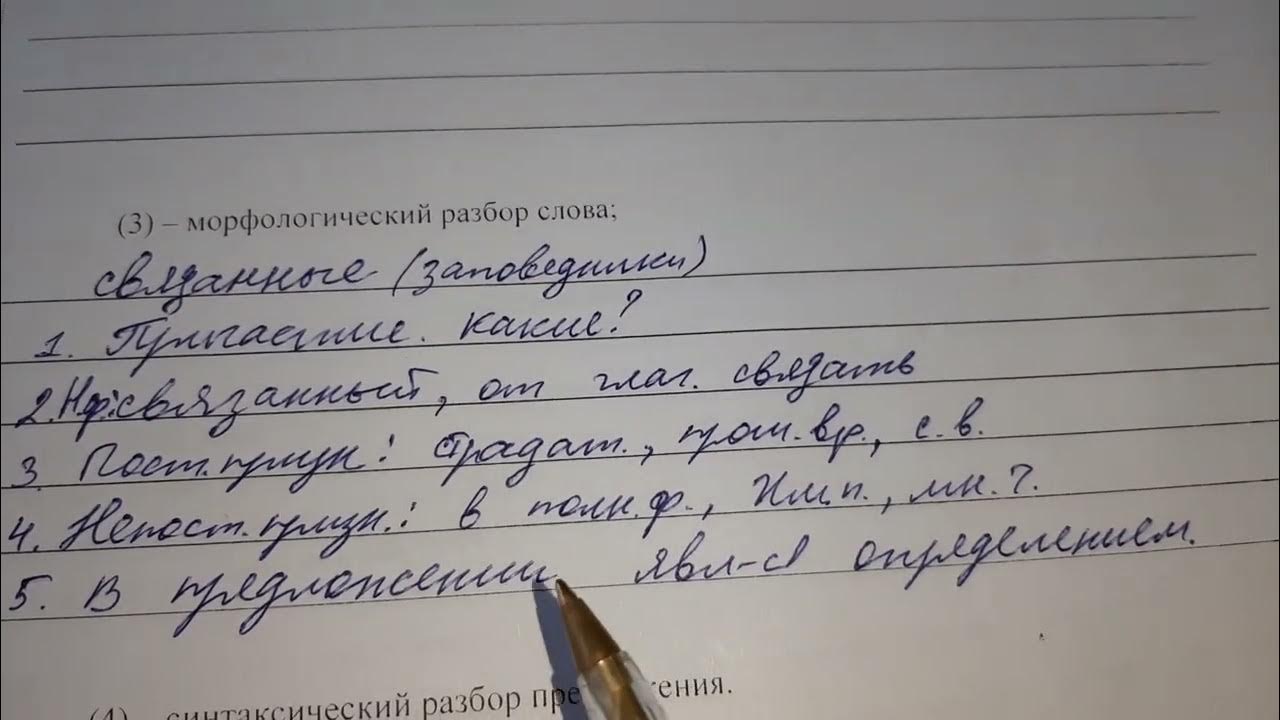 (3) – морфологический разбор слова;
связанные (заповедники)
1. Причастие. Какие?
2. Н.ф.: связанный, от глаг. связать
3. Пост. призн.: страдат., прош. вр., с. в.
4. Непост. призн.: в полн. ф., Им. п., мн. ч.
5. В предложении явл-ся определением.
(4) – синтаксический разбор